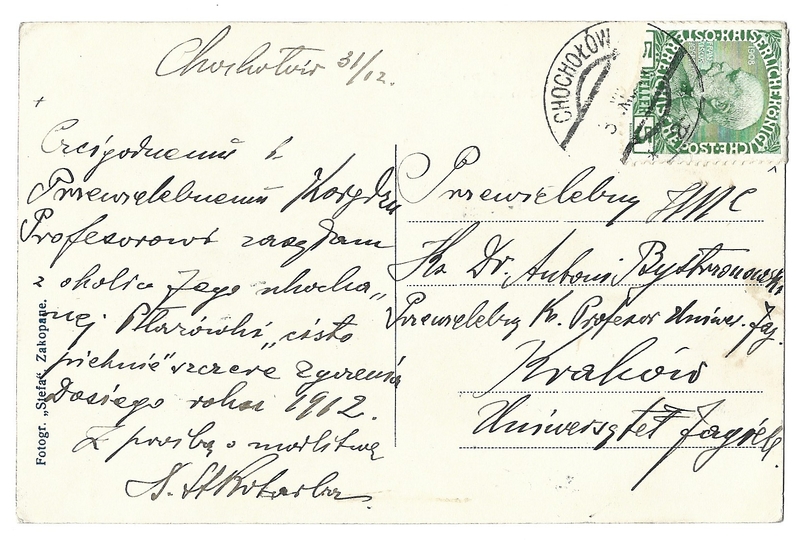 Chochołów 31/12.
Czcigodnemu i
Przewielebnemu Księdzu
Profesorowi zasyłam
z okolic Jego ukocha„
nej Ptasówki „cisto
pieknie" szczere życzenia
Dosiego roku 1912.
Z prośbą o modlitwę
Fotogr. „Stefa", Zakopane.
CHOCHOŁÓW
KAISERLICHE KÖNIGLICHE
1908
HELLER
5
Przewielebny JMC
Ks. Dr. Antoni Bystrzonowski
Przewielebny Ks. Profesor Uniwer. Jag.
Kraków
Uniwersytet Jagiell.